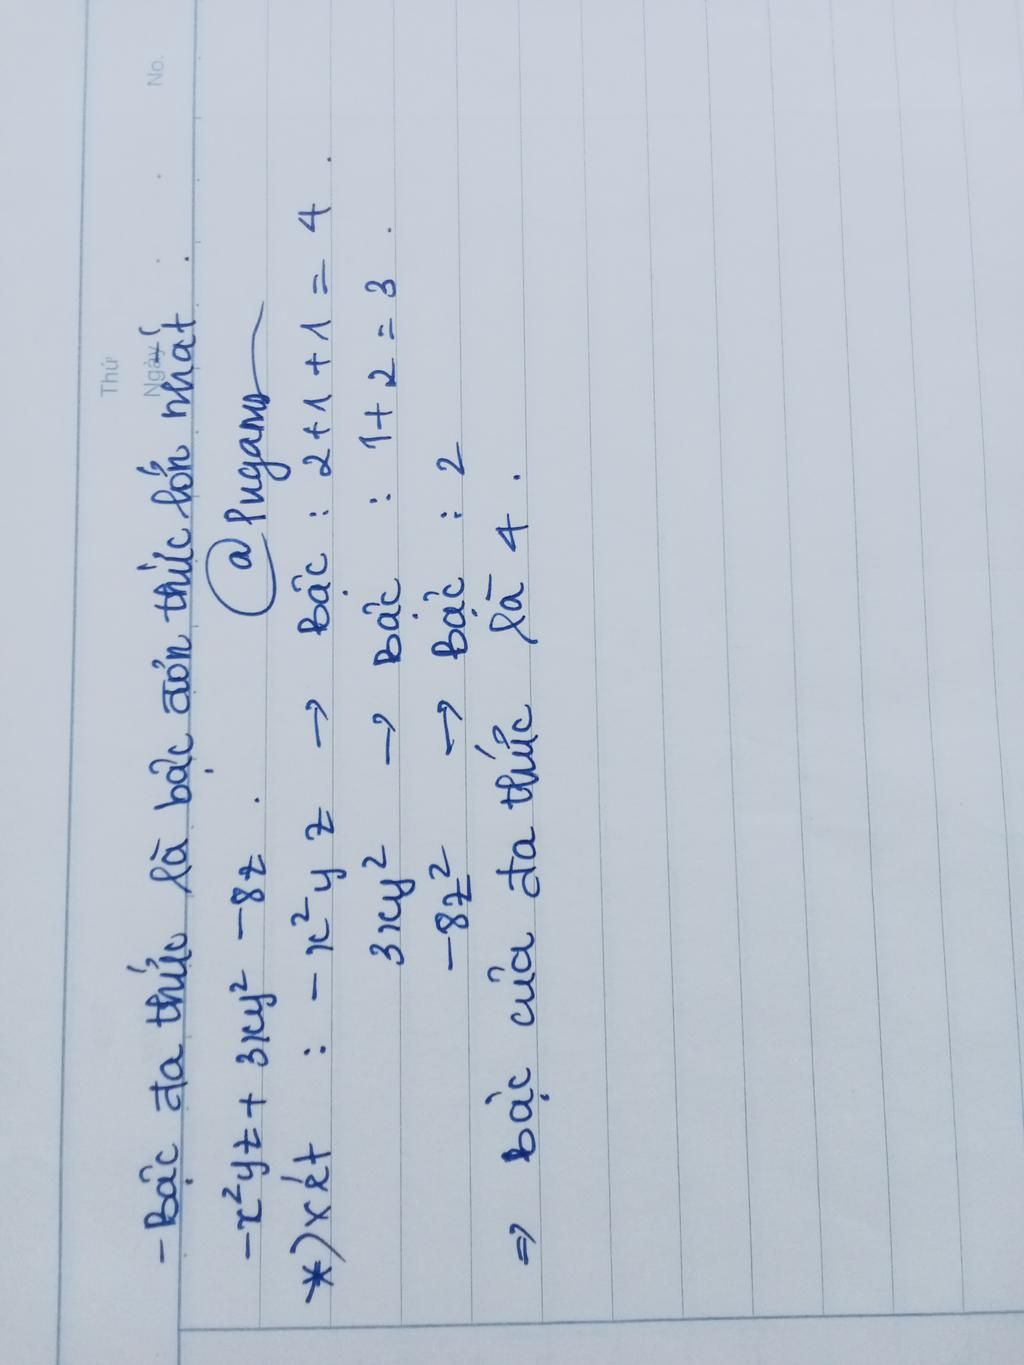 Thứ
Ngày No.
- Bậc đa thức là bậc đơn thức lớn nhất.
-x²yz + 3xy² - 8z.
@Pugang
*) xét : - x²yz → Bậc : 2+1+1 = 4.
3xy² → Bậc : 1+2 = 3.
-8z² → Bậc : 2
⇒ Bậc của đa thức là 4.